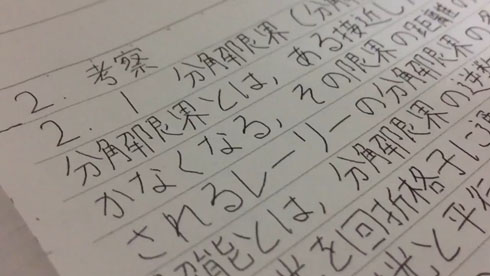 2. 考察
2. 1 分解限界(分解
分解限界とは,ある接近し
かなくなる,その限界の距離の
されるレーリーの分解限界の
能とは,分解限界の逆数
を回折格子に
と平行